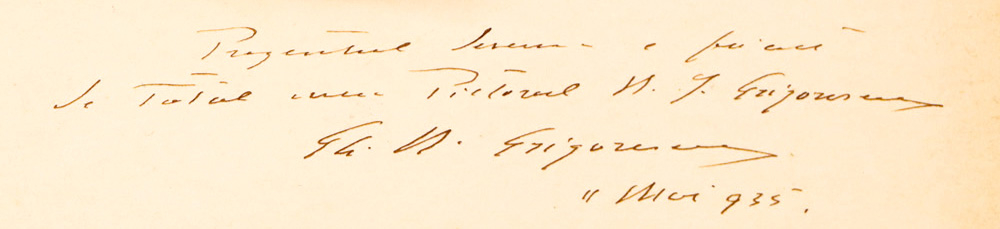 Prezentul desemn e făcut
de Tatăl meu Pictorul N. I. Grigorescu
Gh. N. Grigorescu
11 Mai 935.